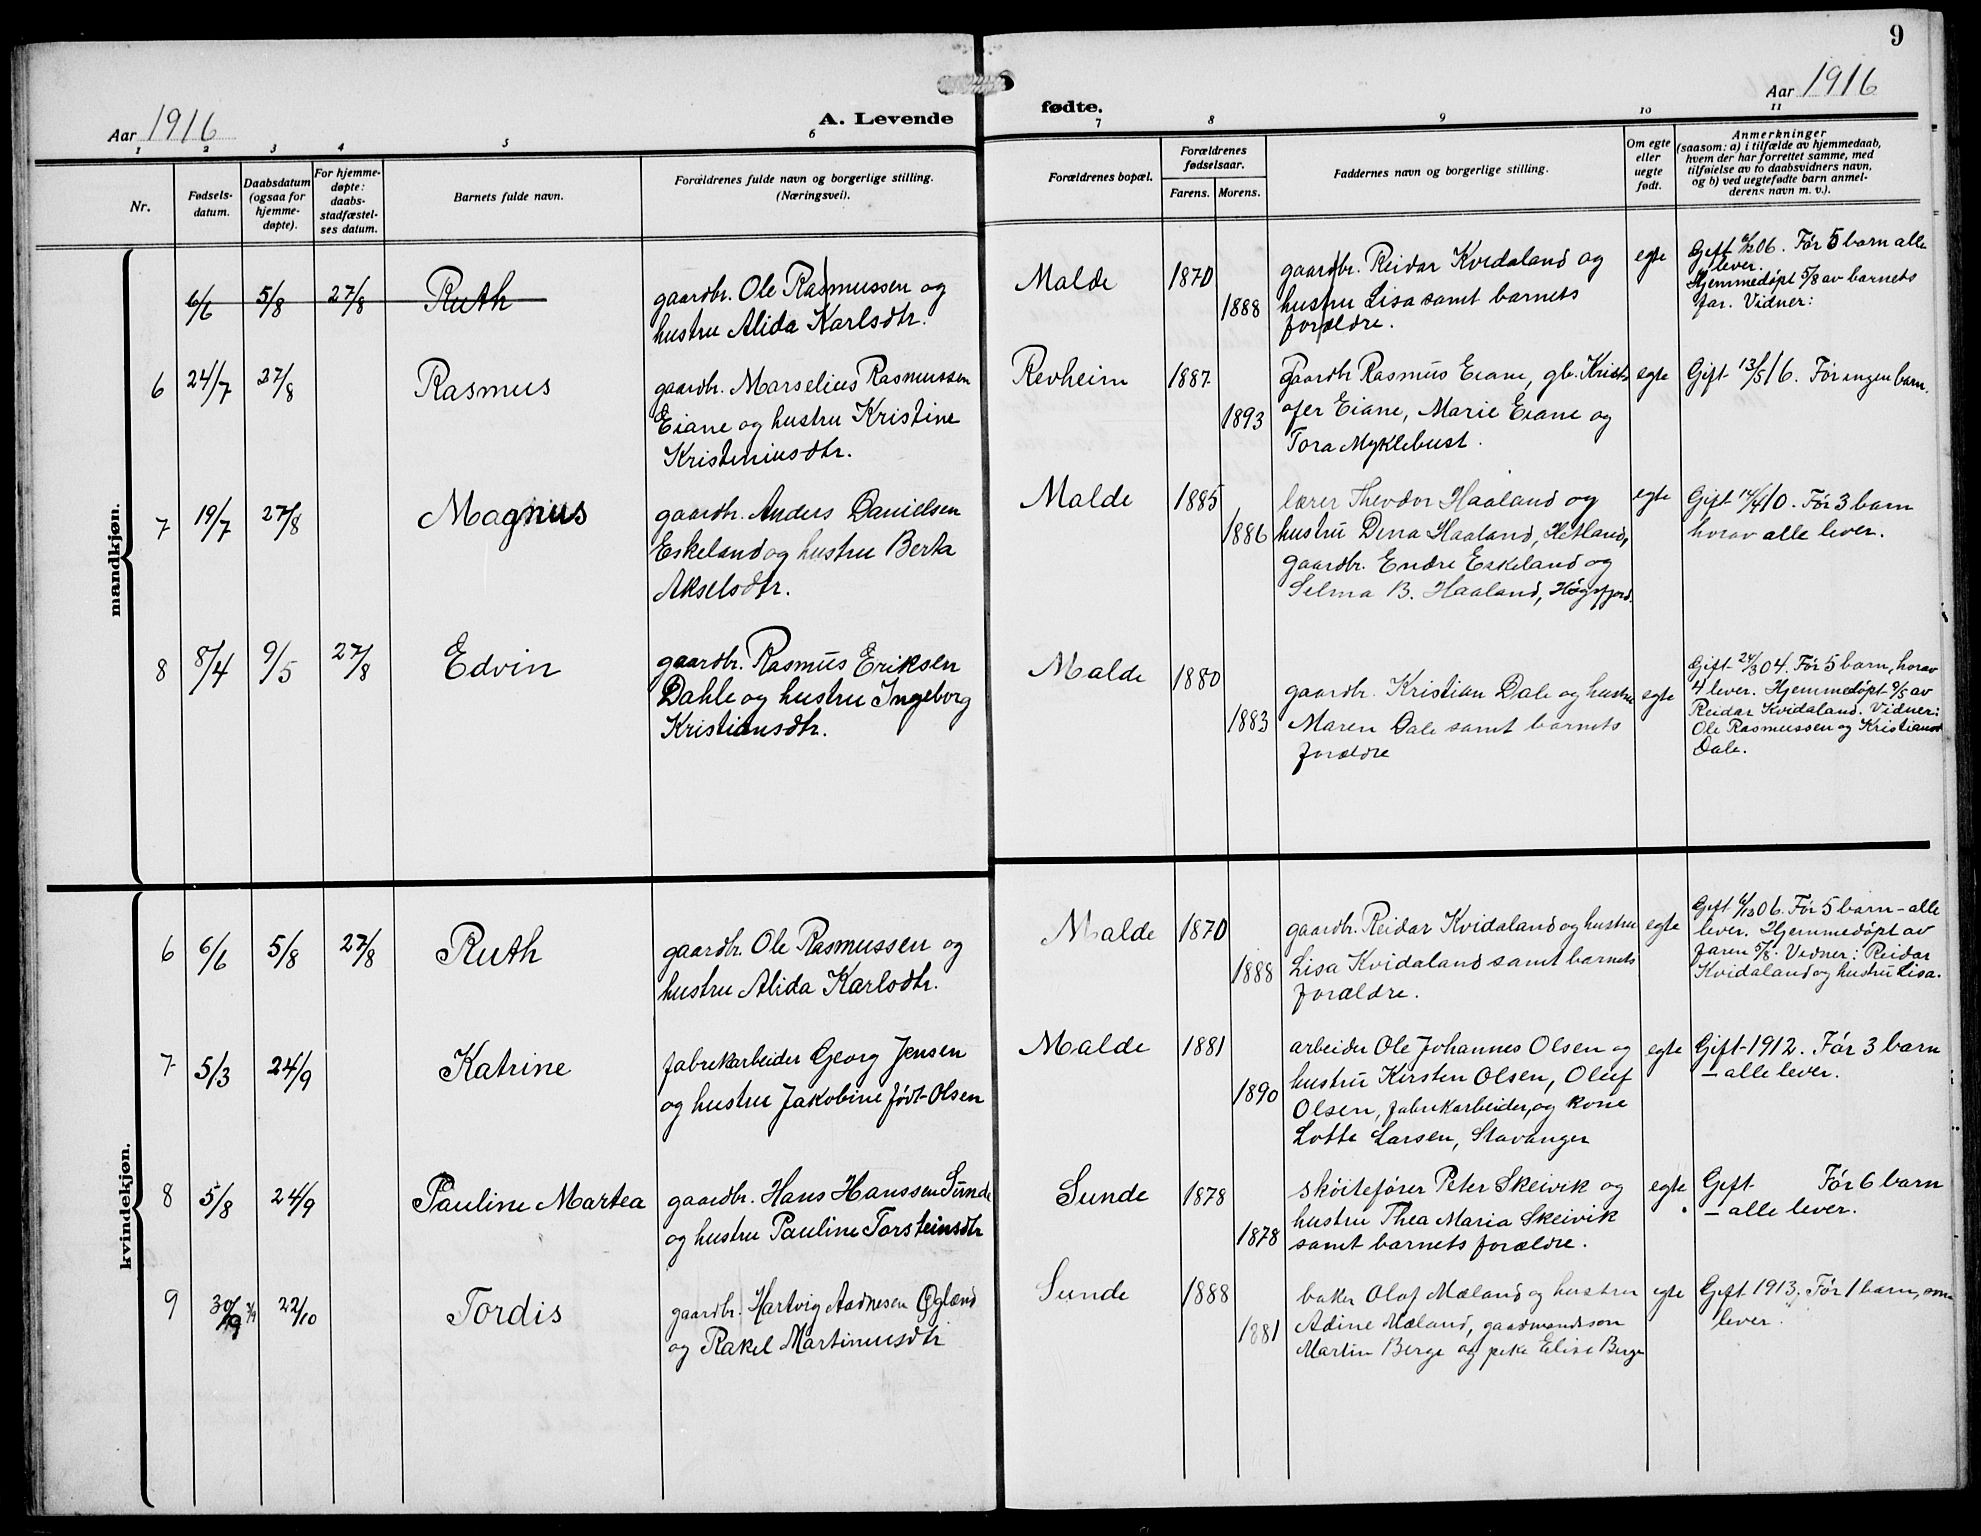 9
Aar 1916
A. Levende
fødte.
Aar 1916
1 2 3 4 5 6 7 8 9 10 11
Nr.
Fødsels-
datum.
Daabsdatum
(ogsaa for
hjemme-
døpte).
For hjemme-
døpte:
daabs-
stadfæstel-
ses datum.
Barnets fulde navn.
Forældrenes fulde navn og borgerlige stilling.
(Næringsvei).
Forældrenes bopæl.
Forældrenes
fødselsaar.
Farens. Morens.
Faddernes navn og borgerlige stilling.
Om egte
eller
uegte
født.
Anmerkninger
(saasom: a) i tilfælde av hjemmedaab,
hvem der har forrettet samme, med
tilføielse av to daabsvidners navn,
og b) ved uegtefødte barn anmel-
derens navn m. v.).
mandkjøn.
6/6 5/8 27/8 Ruth
gaardbr. Ole Rasmussen og
hustru Alida Karlsdtr.
Malde 1870
1888
gaardbr. Reidar Kvidaland og
hustru Lisa samt barnets
forældre.
egte
Gift 06. Før 5 barn alle
lever.
Hjemmedøpt 5/8 av barnets
far. Vidner:
6 24/7 27/8 Rasmus
gaardbr. Marselius Rasmussen
Eiane og hustru Kristine
Kristeniusdtr.
Revheim 1887
1893
Gaardbr Rasmus Eiane, gb. Krist-
ofer Eiane, Marie Eiane og
Tora Myklebust.
egte
Gift 13/5 16. Før ingen barn.
7 19/7 27/8 Magnus
gaardbr. Anders Danielsen
Eskeland og hustru Berta
Akselsdtr.
Malde 1885
1886
lærer Theodor Haaland og
hustru Dina Haaland, Hetland,
gaardbr. Endre Eskeland og
Selma B. Haaland, Høgsfjord.
egte
Gift 14/4 10. Før 3 barn
horav alle lever.
8 8/4 9/5 27/8 Edvin
gaardbr. Rasmus Eriksen
Dahle og hustru Ingeborg
Kristiansdtr.
Malde 1880
1883
gaardbr. Kristian Dale og hustru
Maren Dale samt barnets
forældre
egte
Gift 24/3 04. Før 5 barn, horav
4 lever. Hjemmedøpt 9/5 av
Reidar Kvidaland. Vidner:
Ole Rasmussen og Kristian
Dale.
kvindekjøn.
6 6/6 5/8 27/8 Ruth
gaardbr. Ole Rasmussen og
hustru Alida Karlsdtr.
Malde 1870
1888
gaardbr. Reidar Kvidaland og hustru
Lisa Kvidaland samt barnets
forældre.
egte
Gift 06. Før 5 barn - alle
lever. Hjemmedøpt av
faren 5/8. Vidner: Reidar
Kvidaland og hustru Lisa.
7 5/3 24/9 Katrine
fabrikarbeider Georg Jensen
og hustru Jakobine født Olsen
Malde 1881
1890
arbeider Ole Johannes Olsen og
hustru Kirsten Olsen, Oluf
Olsen, fabrikarbeider, og kone
Lotte Larsen, Stavanger
egte
Gift 1912. Før 3 barn
- alle lever.
8 5/8 24/9 Pauline Martea
gaardbr. Hans Hanssen Sunde
og hustru Pauline Torsteinsdtr
Sunde 1878
1878
skøitefører Peter Skeivik og
hustru Thea Maria Skeivik
samt barnets forældre.
egte
Gift Før 6 barn
- alle lever.
9 22/10 Tordis
gaardbr. Hartvig Aadnesen Øglænd
og Rakel Martinusdtr
Sunde 1888
1881
baker Olaf Mæland og hustru
Adine Mæland, gaardmandssøn
Martin Berge og pike Elise Berge
egte
Gift 1913. Før 1 barn, som
lever.